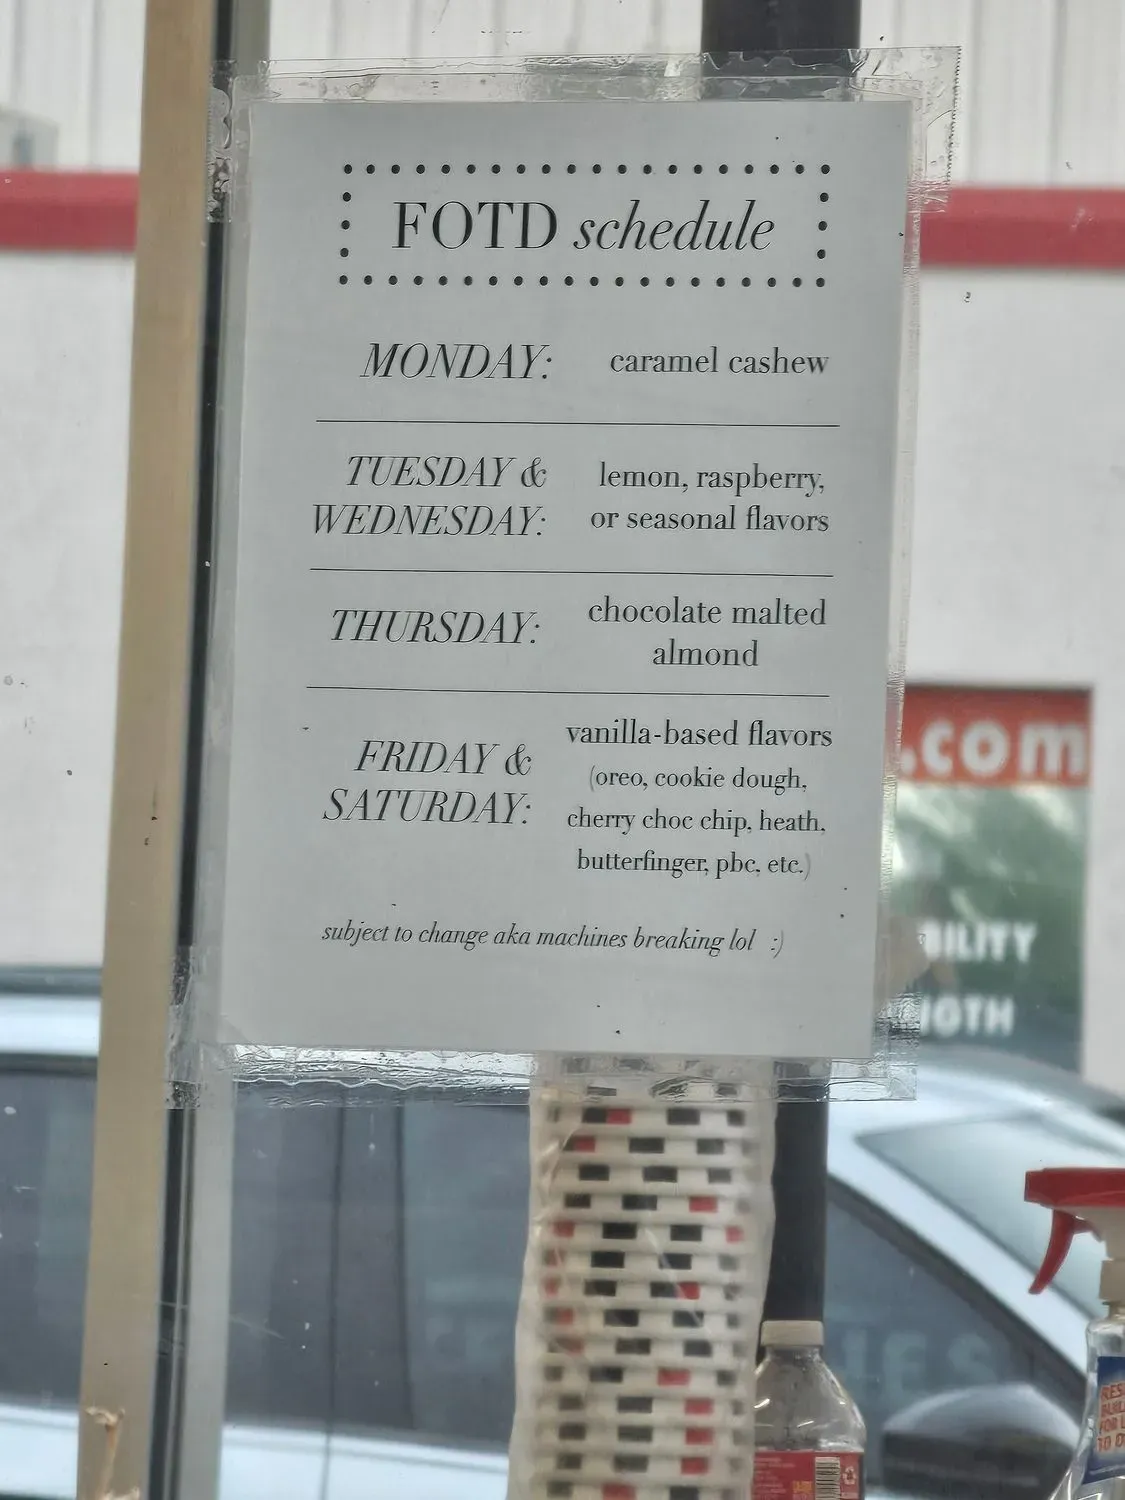 FOTD schedule
MONDAY: caramel cashew
TUESDAY &
WEDNESDAY:
lemon, raspberry,
or seasonal flavors
THURSDAY:
chocolate malted
almond
FRIDAY &
SATURDAY:
vanilla-based flavors
(oreo, cookie dough,
cherry choc chip, heath,
butterfinger, pbc, etc.)
subject to change aka machines breaking lol :)
.com